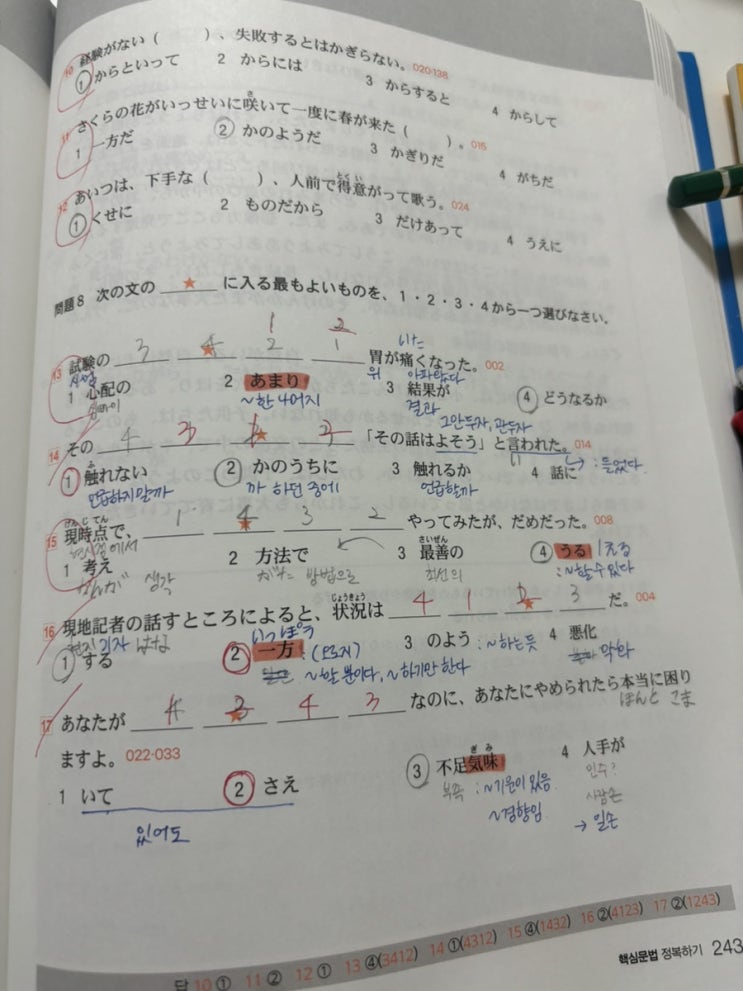 10 経験がない（　　　）、失敗するとはかぎらない。020·138
1 からといって 2 からには 3 からすると 4 からして
11 さくらの花がいっせいに咲いて一度に春が来た（　　　）。015
1 一方だ 2 かのようだ 3 かぎりだ 4 がちだ
12 あいつは、下手な（　　　）、人前で得意がって歌う。024
1 くせに 2 ものだから 3 だけあって 4 うえに
問題8 次の文の ★ に入る最もよいものを、1・2・3・4から一つ選びなさい。
1 2
3 4 2 1
13 試験の ____ ★ ____ ____ 胃が痛くなった。002
시험 위 아파왔다
1 心配の 2 あまり 3 結果が 4 どうなるか
~한 나머지 결과
그만두자, 관두자
14 その ____ ____ ★ ____ 「その話はよそう」と言われた。014
4 3 1 2
い → : 들었다.
1 触れない 2 かのうちに 3 触れるか 4 話に
언급하지말까 까 하던 중에 언급할까
15 現時点で、 ____ ★ ____ ____ やってみたが、だめだった。008
1 4 3 2
현시점에서
1 考え 2 方法で 3 最善の 4 うる
생각 방법으로 최선의 : ~할 수 있다
16 現地記者の話すところによると、状況は ____ ____ ★ ____ だ。004
4 1 2 3
현지 기자 はな いっぽう
1 する 2 一方 3 のよう 4 悪化
: ~할 뿐이다, ~하기만 한다 : ~하는듯 악화
17 あなたが ____ ★ ____ ____ なのに、あなたにやめられたら本当に困り
4 3
ほんと こま
ますよ。022·033
1 いて 2 さえ 3 不足気味 4 人手が
있어도 부족 : ~기운이 있음 인수?
~경향임 사람손
→ 일손
답 10 ① 11 ② 12 ① 13 ④(3412) 14 ①(4312) 15 ④(1432) 16 ②(4123) 17 ②(1243)
핵심문법 정복하기 243